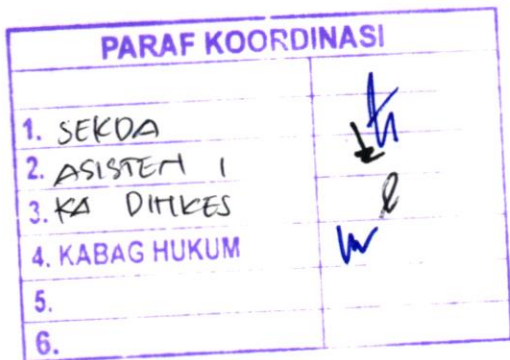 PARAF KOORDINASI
1. SEKDA
2. ASISTEN I
3. KA DINKES
4. KABAG HUKUM
5.
6.